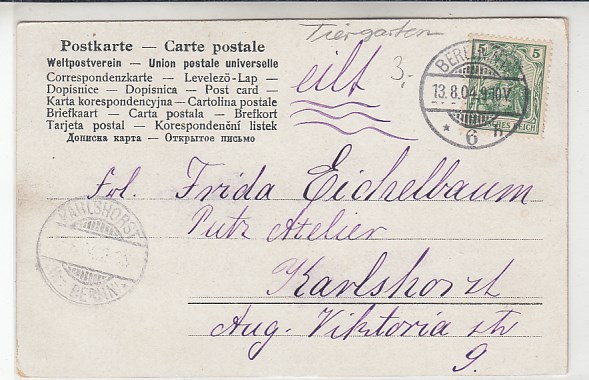 Tiergarten
Postkarte — Carte postale
Weltpostverein — Union postale universelle
Correspondenzkarte — Levelezö-Lap —
Dopisnice — Dopisnica — Post card —
Karta korespondencyjna — Cartolina postale
Briefkaart — Carta postala — Brefkort
Tarjeta postal — Korespondenční listek
Дописна карта — Открытое письмо
eilt
3,-
5 5
BERLIN
13.8.04.9-10V.
* 6 h.
DEUTSCHES REICH
Frl. Frida Eichelbaum
Putz Atelier
Karlshorst
Aug. Viktoria str
9.
KARLSHORST
(BZ. BERLIN)